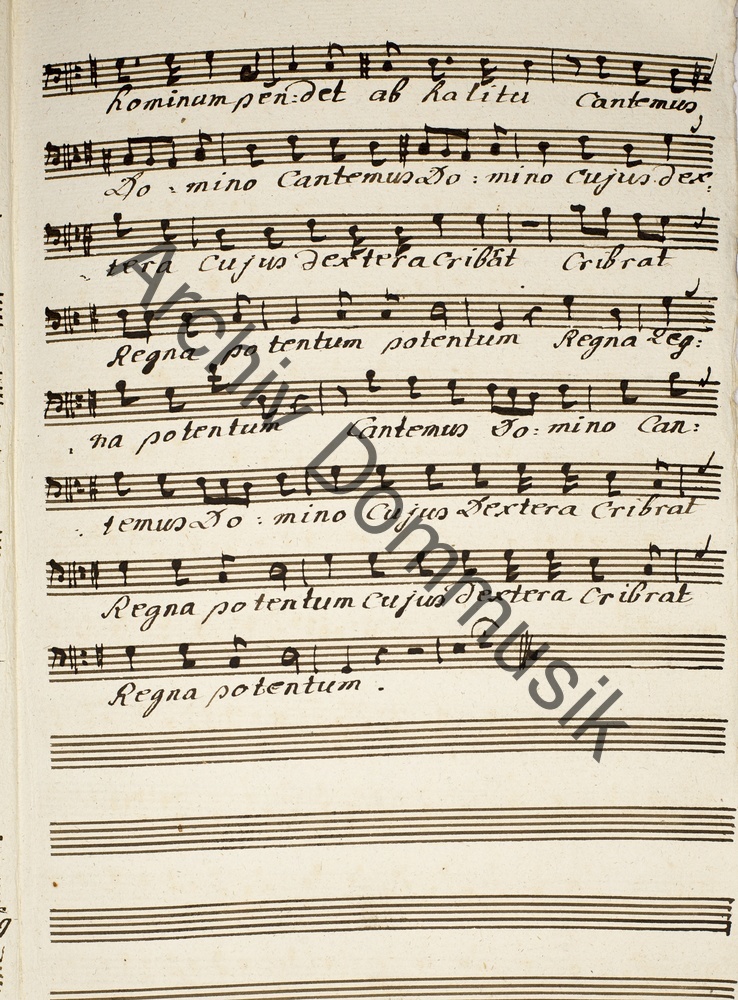 hominum pen: det ab halitu Cantemus
Do: mino Cantemus Do: mino Cujus dex:
tera Cujus dextera Cribat Cribrat
Regna potentum potentum Regna Reg:
na potentum Cantemus Do: mino Can:
temus Do: mino Cujus Dextera Cribrat
Regna potentum Cujus dextera Cribrat
Regna potentum.
Archiv Dommusik